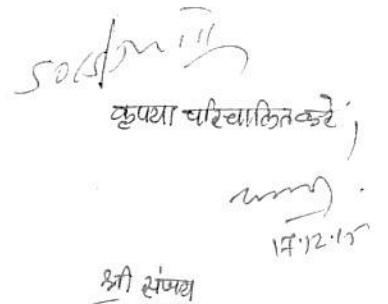 SOCS/DM III
कृपया परिचालित करें,
17.12.15
श्री संजय